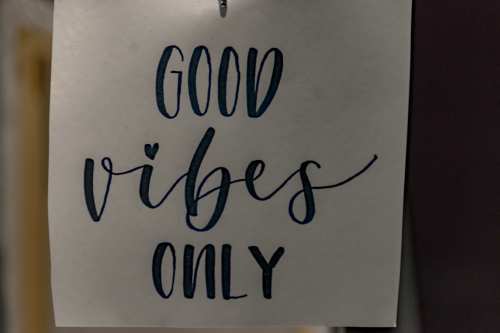 GOOD
vibes
ONLY